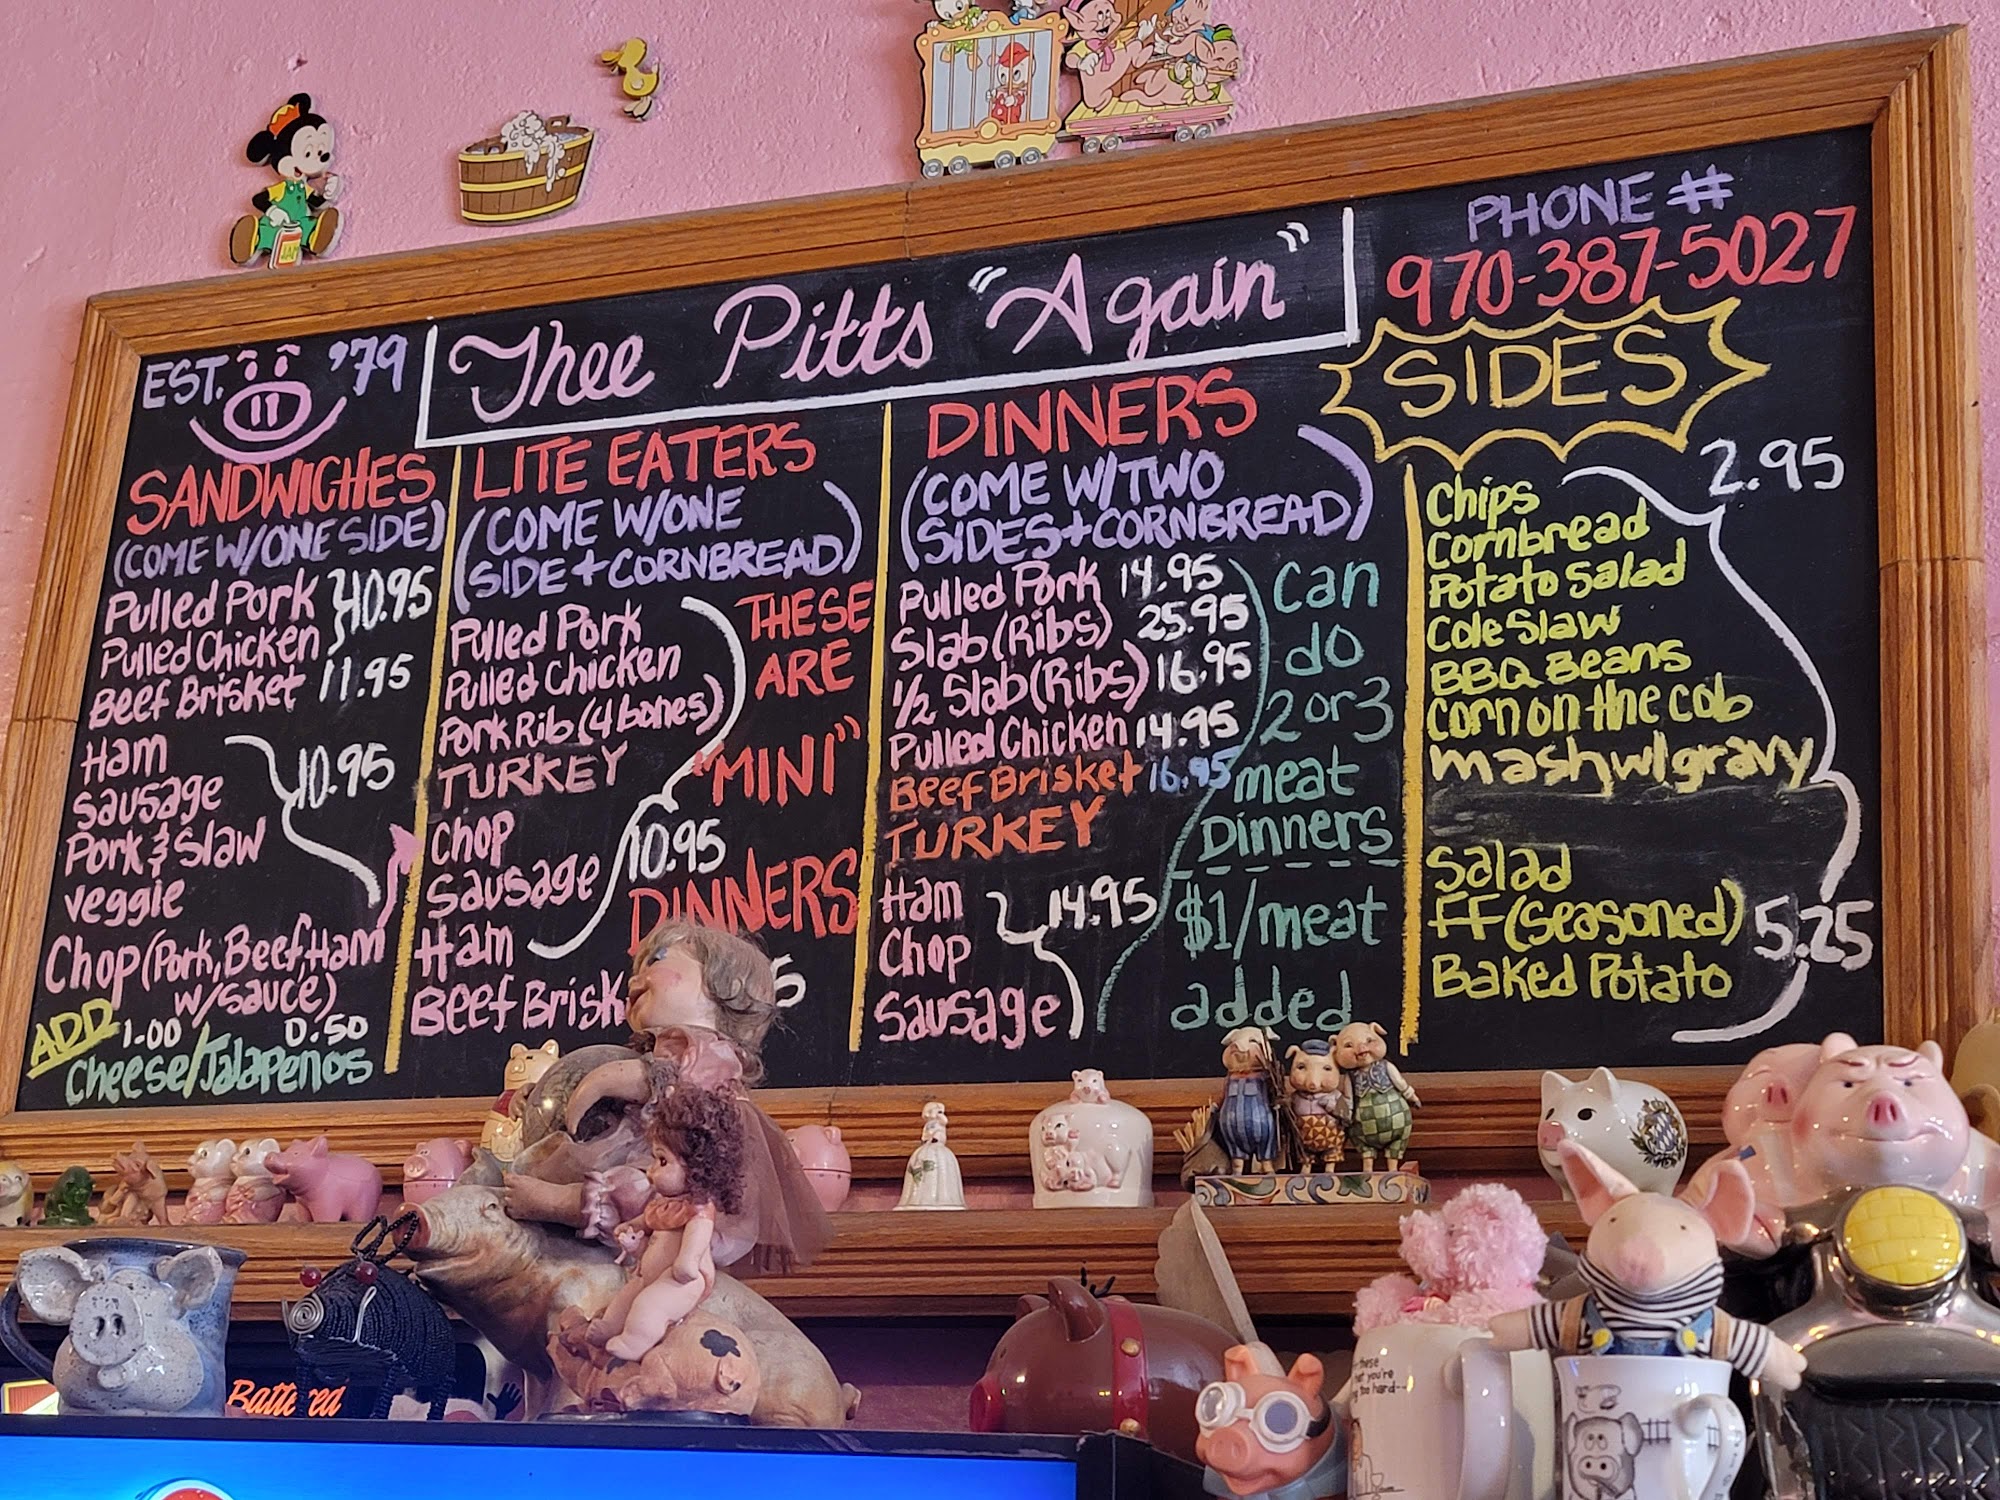 EST. '79
Thee Pitts "Again"
PHONE #
970-387-5027
SANDWICHES
(COME W/ONE SIDE)
Pulled Pork
Pulled Chicken 10.95
Beef Brisket 11.95
Ham
Sausage 10.95
Pork & Slaw
Veggie
Chop (Pork, Beef, Ham
w/sauce)
ADD 1.00 0.50
Cheese/Jalapenos
LITE EATERS
(COME W/ONE
SIDE + CORNBREAD)
Pulled Pork
Pulled Chicken
Pork Rib (4 bones)
TURKEY
Chop
Sausage 10.95
Ham
Beef Brisk
THESE
ARE
"MINI"
DINNERS
DINNERS
(COME W/TWO
SIDES + CORNBREAD)
Pulled Pork 14.95
Slab (Ribs) 25.95
1/2 Slab (Ribs) 16.95
Pulled Chicken 14.95
Beef Brisket 16.95
TURKEY
Ham 14.95
Chop
Sausage
can
do
2 or 3
meat
Dinners
$1/meat
added
SIDES
2.95
Chips
Cornbread
Potato Salad
Cole Slaw
BBQ Beans
Corn on the cob
mash w/gravy
Salad
FF (Seasoned) 5.25
Baked Potato
these
you're
too hard--